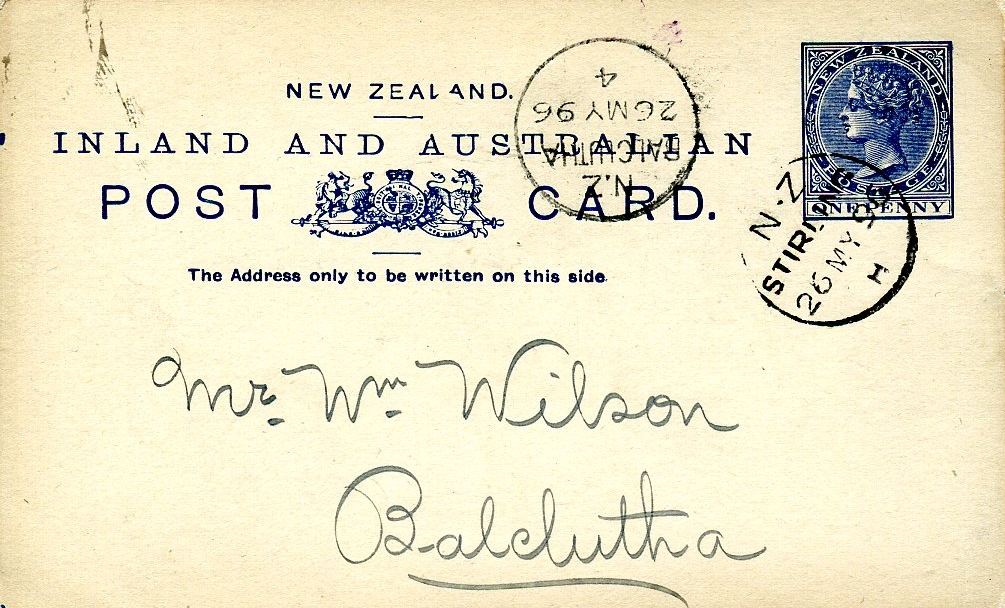 NEW ZEALAND.
INLAND AND AUSTRALIAN
POST CARD.
The Address only to be written on this side.
NEW ZEALAND
POSTAGE
ONE PENNY
N.Z
BALCLUTHA
26 MY 96
4
N.Z
STIRLING
26 MY 96
H
Mr. Wm. Wilson
Balclutha